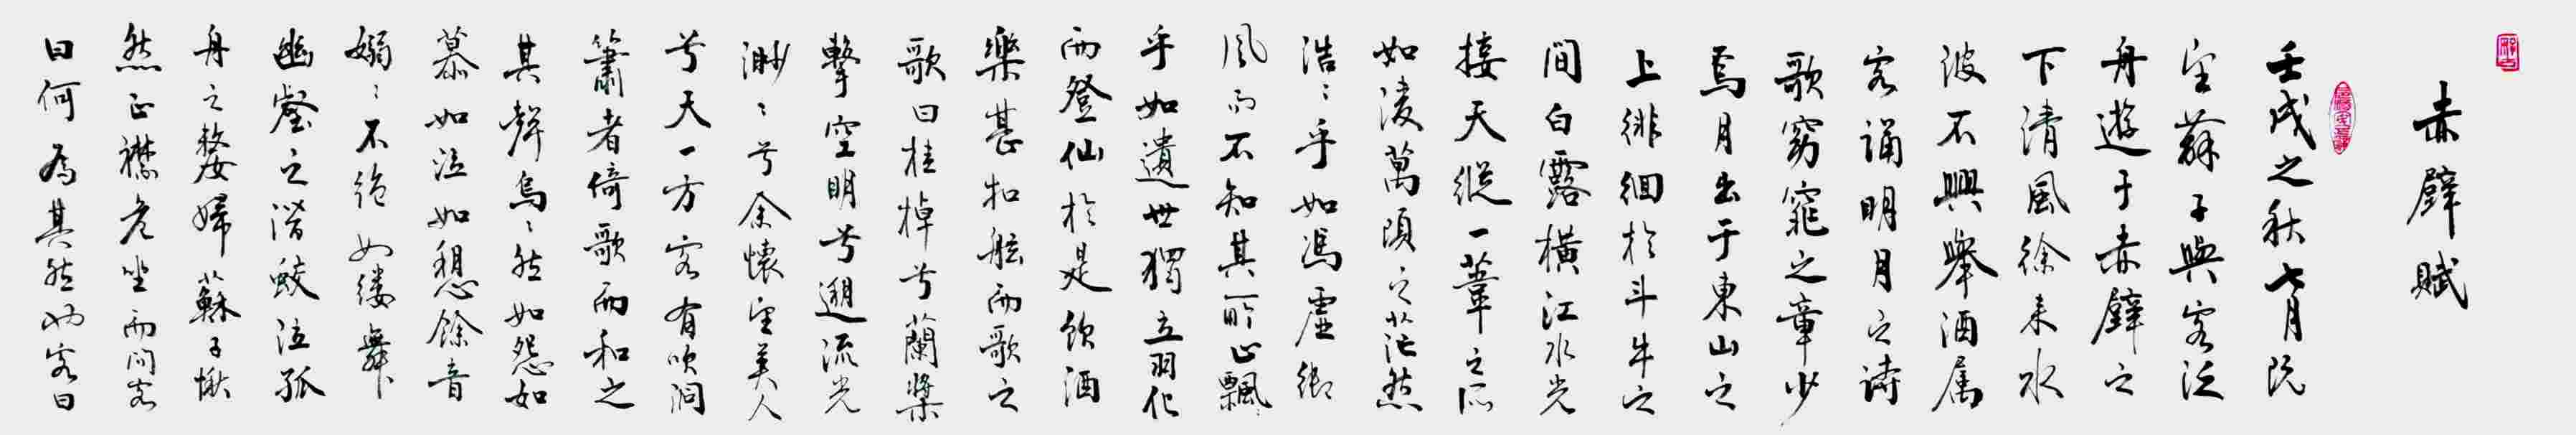 赤壁賦
壬戌之秋七月既
望蘇子與客泛
舟遊于赤壁之
下清風徐来水
波不興舉酒属
客誦明月之詩
歌窈窕之章少
焉月出于東山之
上徘徊於斗牛之
間白露橫江水光
接天縱一葦之所
如凌萬頃之茫然
浩〻乎如馮虛御
風而不知其所止飄〻
乎如遺世獨立羽化
而登仙於是飲酒
樂甚扣舷而歌之
歌曰桂棹兮蘭槳
擊空明兮遡流光
渺〻兮余懷望美人
兮天一方客有吹洞
簫者倚歌而和之
其聲烏〻然如怨如
慕如泣如愬餘音
嫋〻不絶如縷舞
幽壑之潛蛟泣孤
舟之嫠婦蘇子愀
然正襟危坐而問客
曰何為其然也客曰